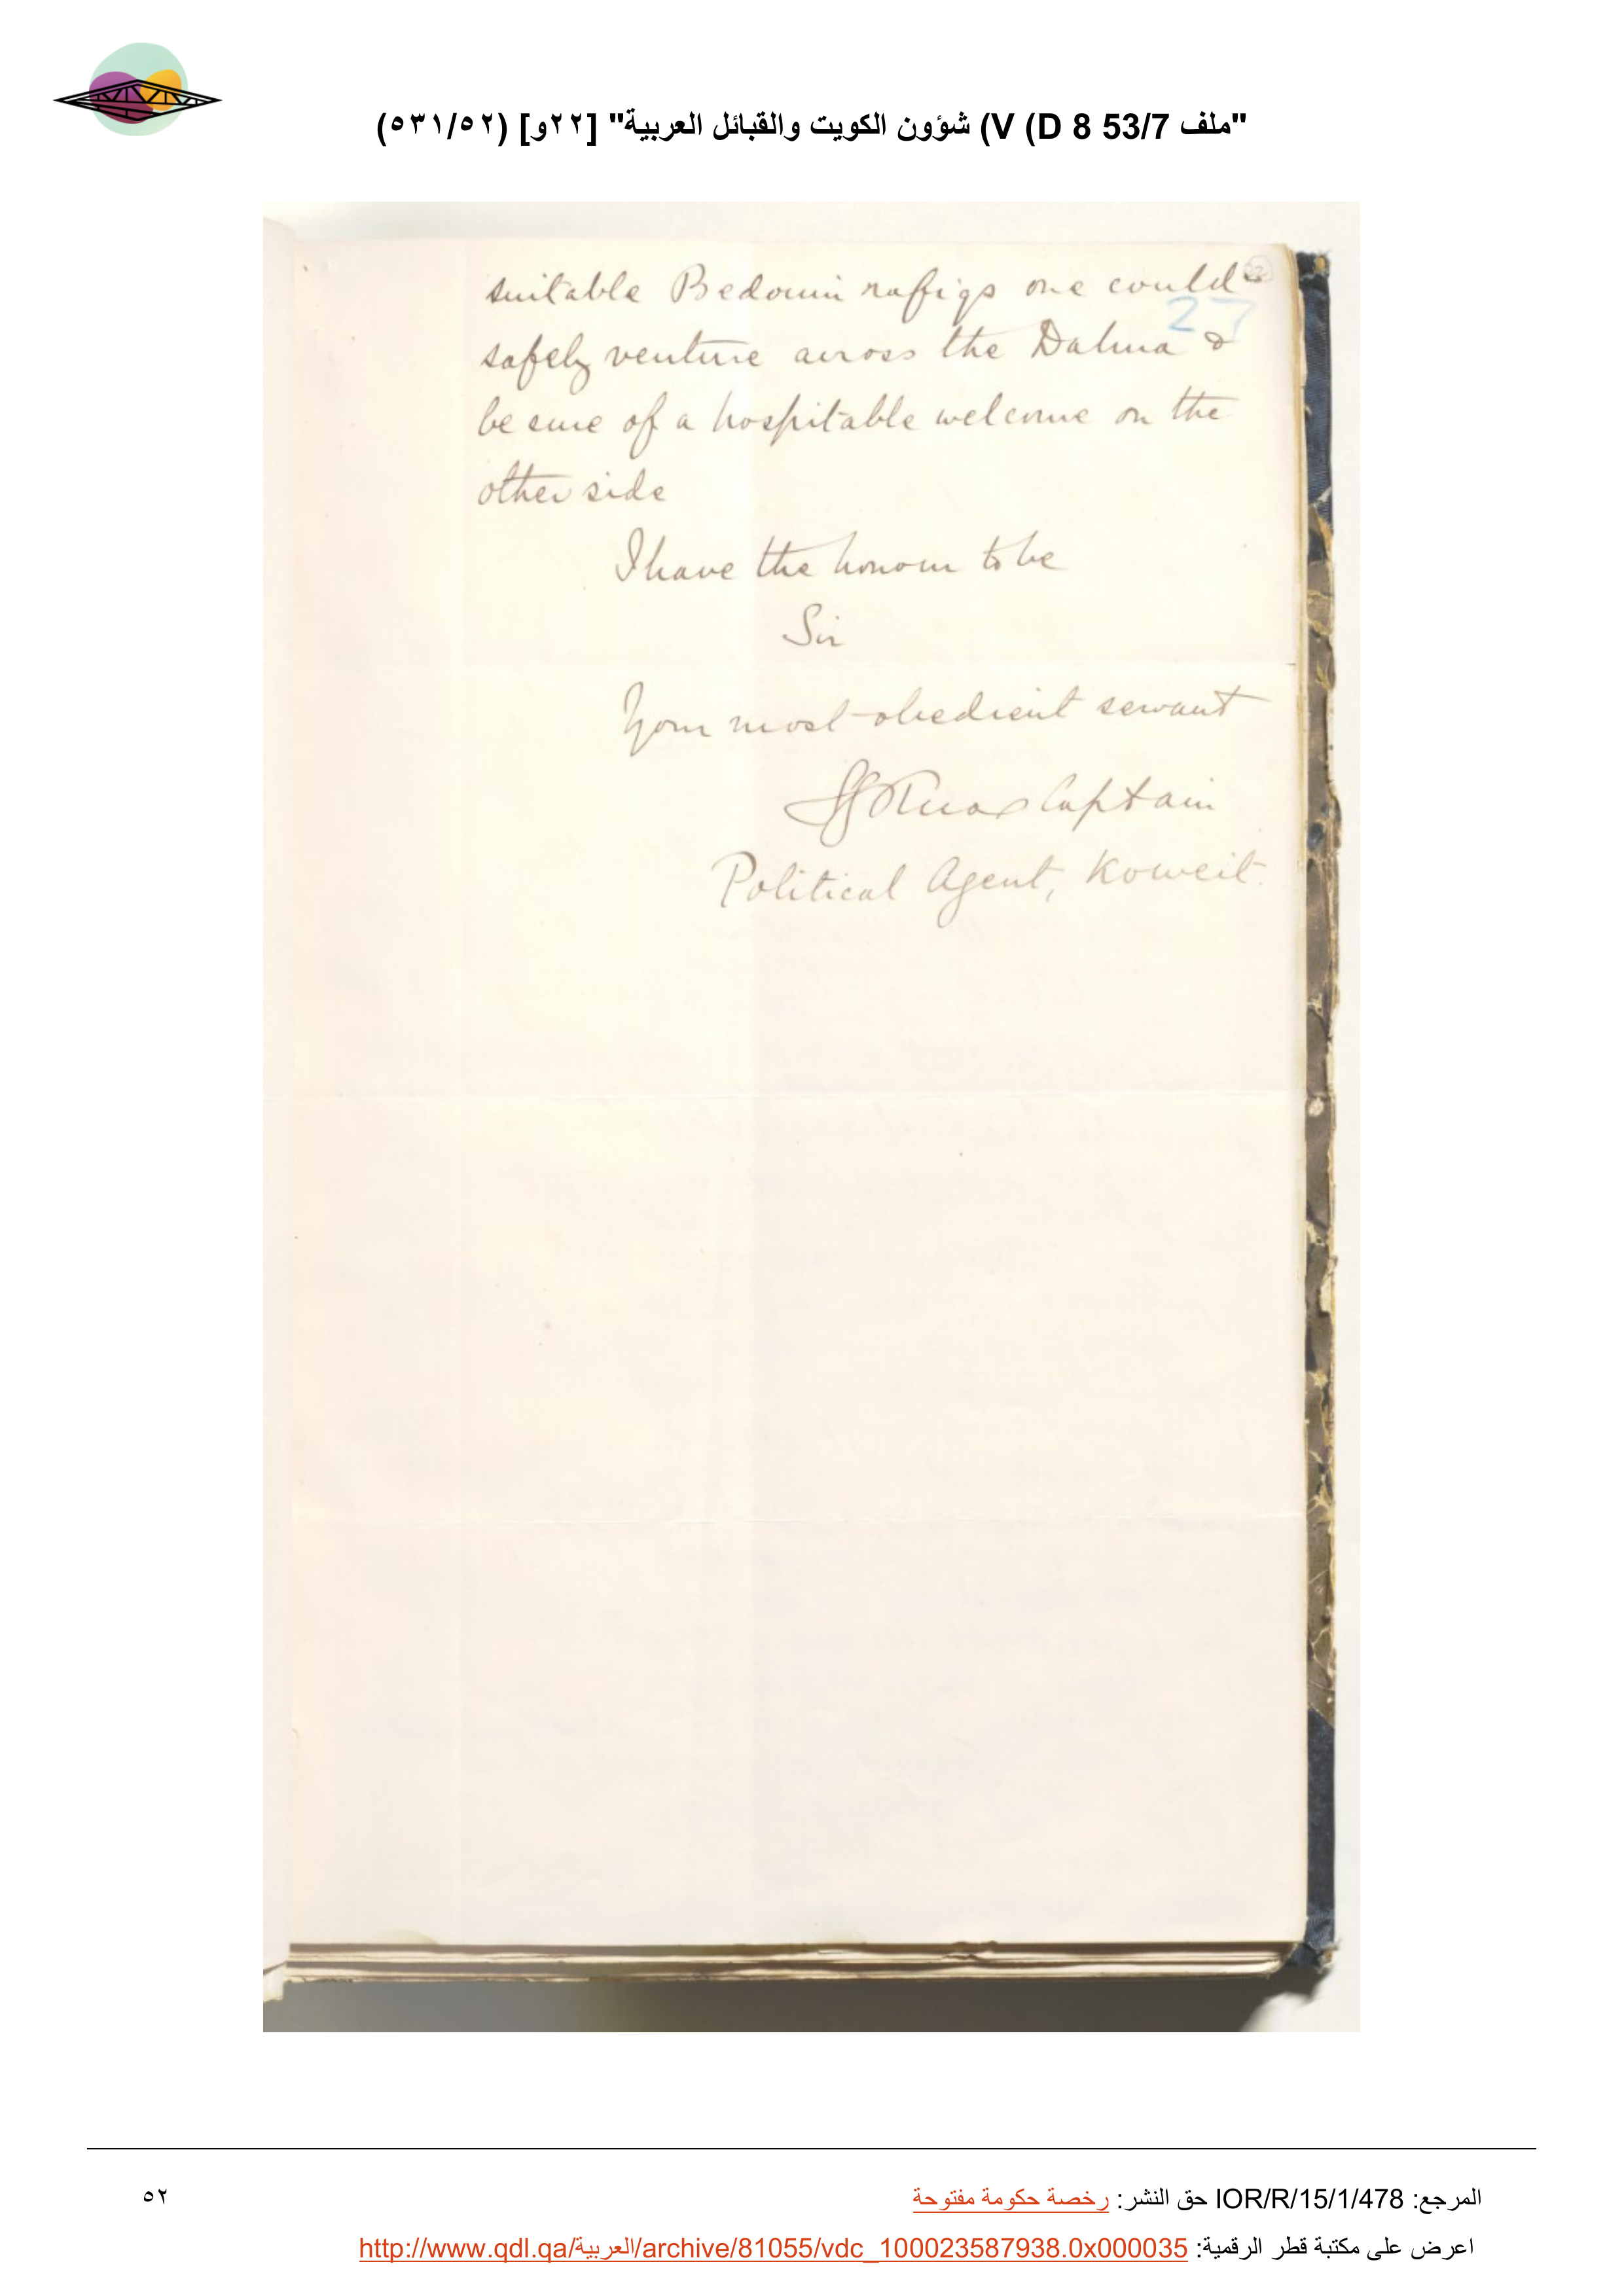 "ملف 53/7 D 8) V) شؤون الكويت والقبائل العربية" [٢٢و] (٥٣١/٥٢)
22
suitable Bedouin rafiqs one could
27
safely venture across the Dahna &
be sure of a hospitable welcome on the
other side
I have the honour to be
Sir
Your most obedient servant
SGKnox Captain
Political Agent, Koweit.
المرجع: IOR/R/15/1/478 حق النشر: رخصة حكومة مفتوحة
٥٢
اعرض على مكتبة قطر الرقمية: http://www.qdl.qa/العربية/archive/81055/vdc_100023587938.0x000035